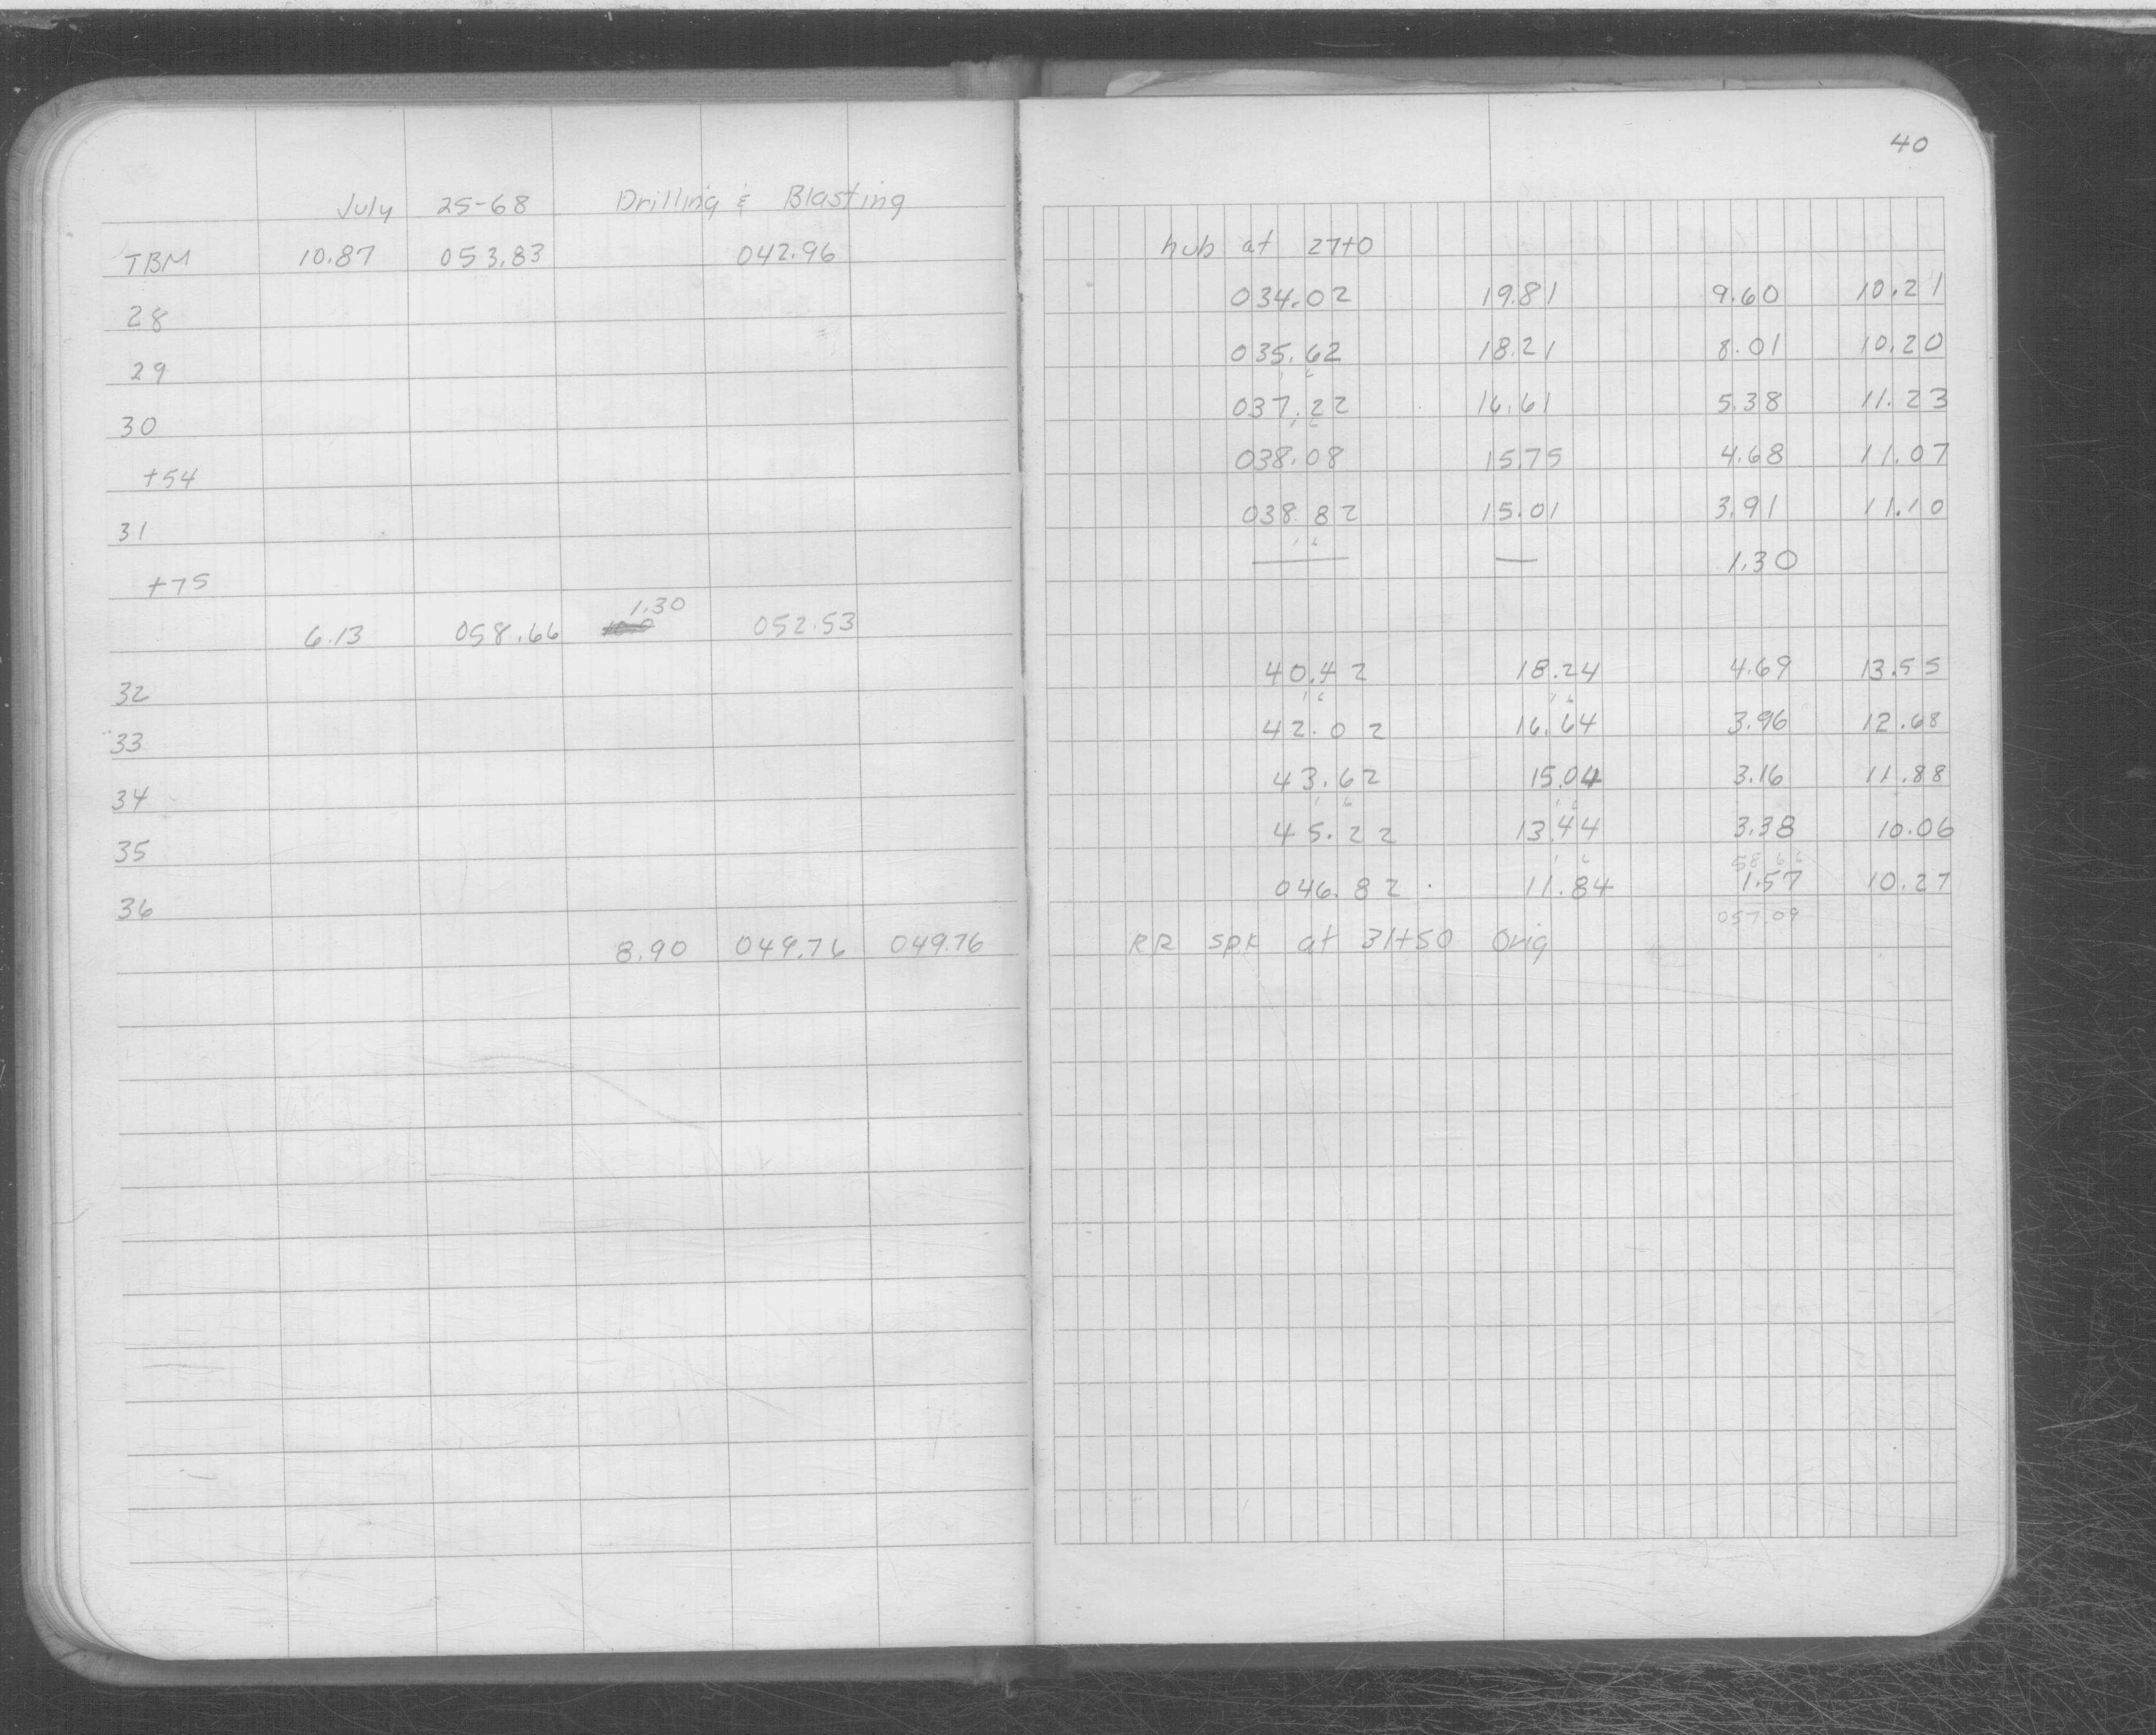 40
July 25-68 Drilling & Blasting
TBM 10.87 053.83 042.96 hub at 27+0
28 034.02 19.81 9.60 10.21
29 035.62 18.21 8.01 10.20
1 6
30 037.22 16.61 5.38 11.23
1 6
+54 038.08 15.75 4.68 11.07
31 038.82 15.01 3.91 11.10
1 6
+75 — — 1.30
1.30
6.13 058.66 052.53
32 40.42 18.24 4.69 13.55
1 6 1 6
33 42.02 16.64 3.96 12.68
34 43.62 15.04 3.16 11.88
1 6 1 6
35 45.22 13.44 3.38 10.06
1 6 58 66
36 046.82 11.84 1.57 10.27
057.09
8.90 049.76 049.76 RR spk at 31+50 Orig